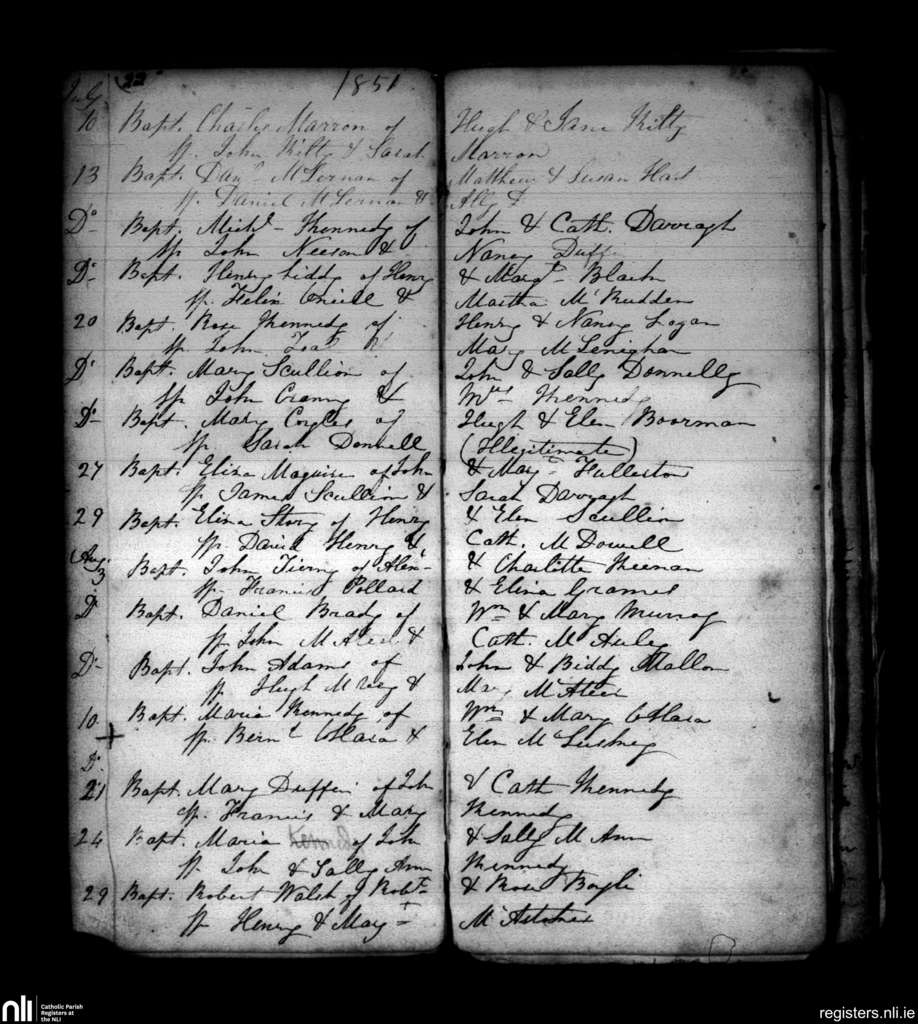 July 22 1851
10 Bapt. Charles Marron of Hugh & Jane Kilty
Sp. John Kilty & Sarah Marron
13 Bapt. Danl McLernan of Matthew & Susan Hart
Sp. Daniel McLernan &
Do Bapt. Michl Kennedy of John & Cath. Darragh
Sp. John Neeson & Nancy Duff
Do Bapt. Henry Liddy of Henry & Margt Black
Sp. Felix Oneill & Martha McCrudden
20 Bapt. Rose Kennedy of Henry & Nancy Logan
Sp. John Mary McLenighan
Do Bapt. Mary Scullion of John & Sally Donnelly
Sp. John & Mrs Kennedy
Do Bapt. Mary of Hugh & Elen Boorman
Sp. Sarah Donnell (Illegitimate)
27 Bapt. Eliza Maguire of John & Margt Fullerton
Sp. James Scullion & Sarah Darragh
29 Bapt. Eliza Story of Henry & Elen Scullin
Sp. David Henry & Cath. McDowell
Aug. 3 Bapt. John Tierny of Alexr & Charlotte Keenan
Sp. Francis Pollard & Eliza
Do Bapt. Daniel Brady of Wm & Mary Murray
Sp. John McAteer & Cath. McAuley
Do Bapt. John Adams of John & Biddy Mallon
Sp. Hugh & Mary McAteer
10 Bapt. Maria Kennedy of Wm & Mary OHara
Sp. Bernd OHara & Elen McCluskey
Do
21 Bapt. Mary Duffin of John & Cath Kennedy
Sp. Francis & Mary Kennedy
24 Bapt. Maria Kennedy of John & Sally McAnn
Sp. John & Sally Ann Kennedy
29 Bapt. Robert Walsh of Robt & Rose Boyle
Sp. Henry & Margt
nli Catholic Parish Registers at the NLI
registers.nli.ie